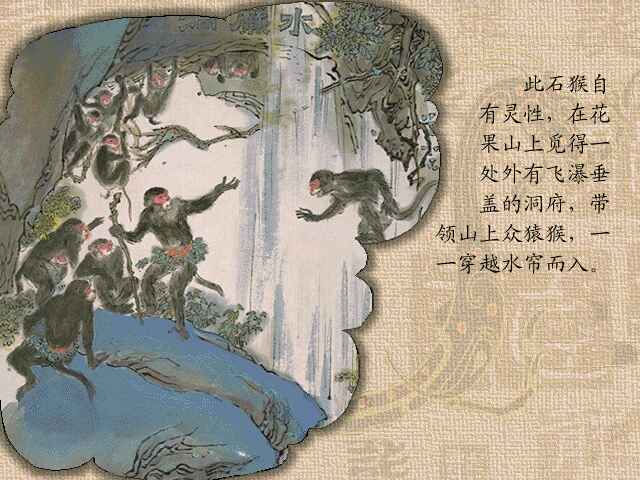 水
此石猴自
有灵性，在花
果山上觅得一
处外有飞瀑垂
盖的洞府，带
领山上众猿猴，一
一穿越水帘而入。